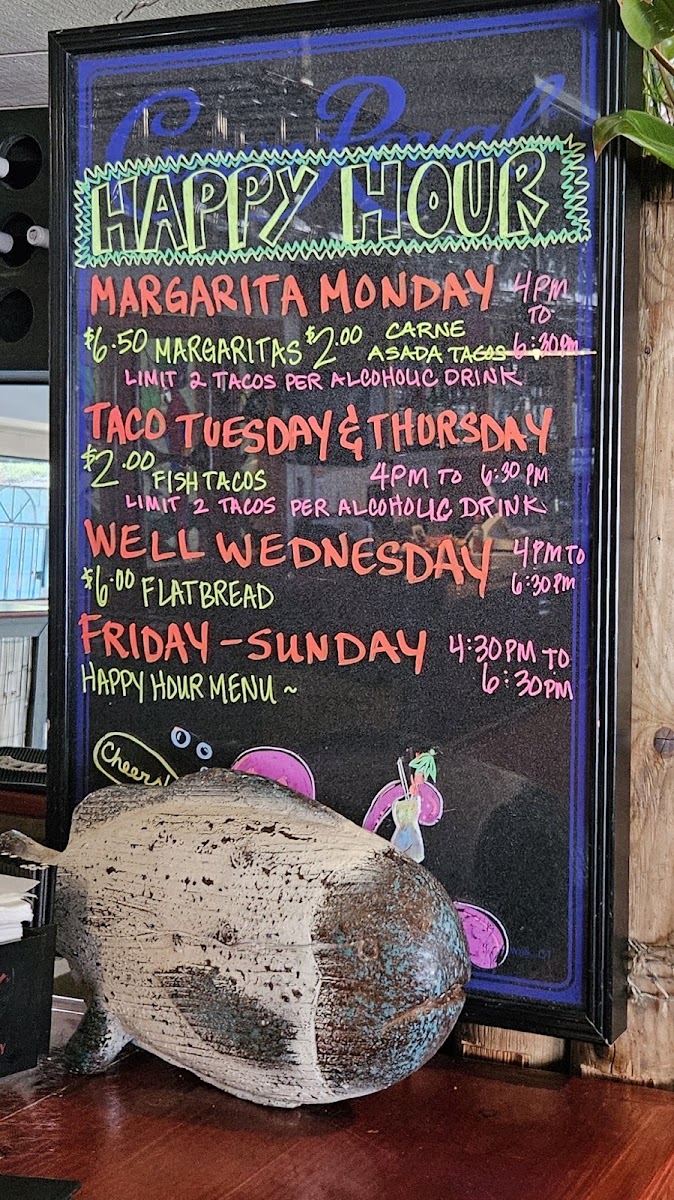 Crown Royal
HAPPY HOUR
MARGARITA MONDAY 4PM TO 6:30PM
$6.50 MARGARITAS $2.00 CARNE ASADA TACOS
LIMIT 2 TACOS PER ALCOHOLIC DRINK
TACO TUESDAY & THURSDAY
$2.00 FISH TACOS 4PM TO 6:30 PM
LIMIT 2 TACOS PER ALCOHOLIC DRINK
WELL WEDNESDAY 4PM TO 6:30PM
$6.00 FLATBREAD
FRIDAY - SUNDAY 4:30PM TO 6:30PM
HAPPY HOUR MENU ~
Cheers!